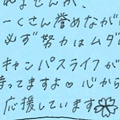 れませんが、
くさん誉めなが
必ず努力はムダ
キャンパスライフが
待ってますよ♡心から
応援しています